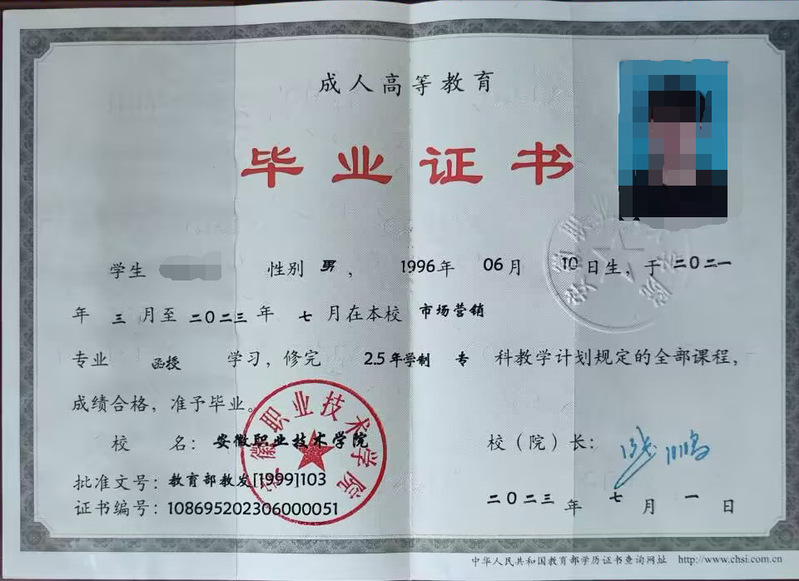 成人高等教育
毕业证书
学生 性别 男， 1996年 06月 10日生，于二〇二一
年 三 月至 二〇二三 年 七 月在本校 市场营销
专业 函授 学习，修完 2.5年学制 专 科教学计划规定的全部课程，
成绩合格，准予毕业。
校 名：安徽职业技术学院
校（院）长：
批准文号：教育部教发[1999]103
证书编号：108695202306000051
二〇二三 年 七 月 一 日
安徽职业技术学院
中华人民共和国教育部学历证书查询网址 http://www.chsi.com.cn